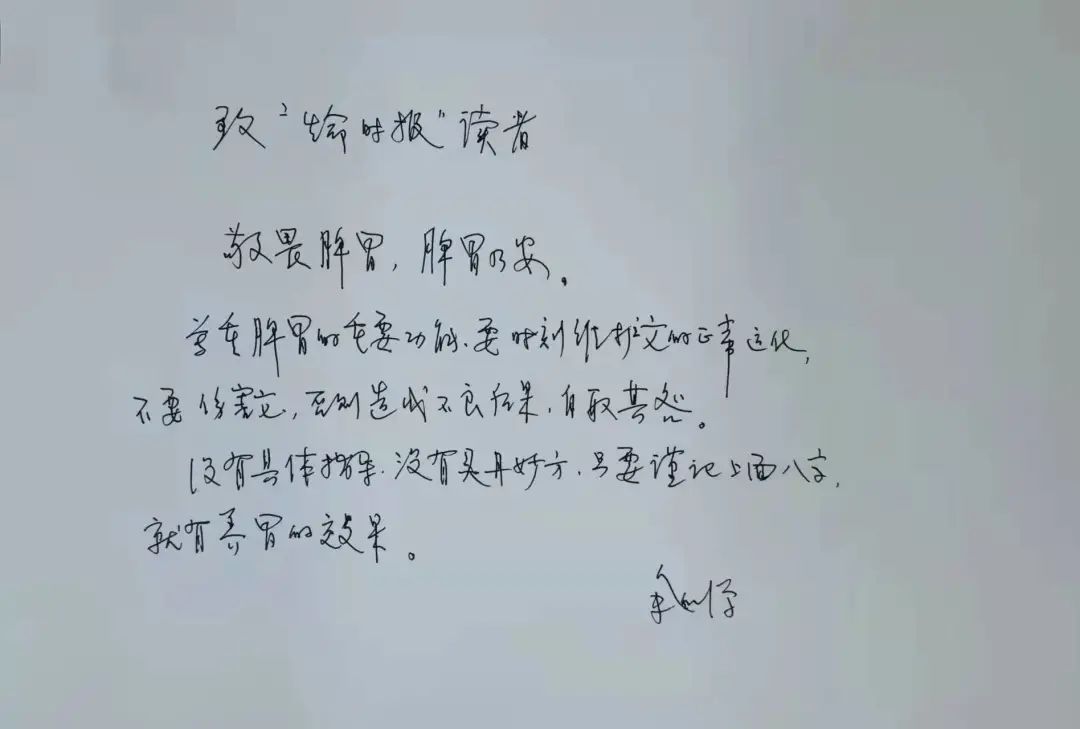 致“生命时报”读者
敬畏脾胃，脾胃乃安。
尊重脾胃的重要功能，要时刻维护它的正常运化，
不要伤害它，否则造成不良后果，自取其咎。
没有具体指标，没有灵丹妙方，只要谨记上面八字，
就有养胃的效果。